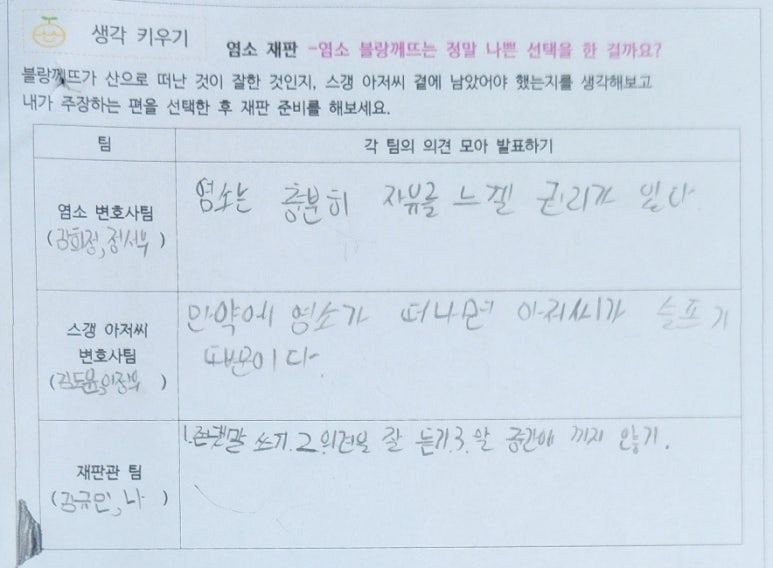 생각 키우기
염소 재판 -염소 블랑께뜨는 정말 나쁜 선택을 한 걸까요?
블랑께뜨가 산으로 떠난 것이 잘한 것인지, 스갱 아저씨 곁에 남았어야 했는지를 생각해보고
내가 주장하는 편을 선택한 후 재판 준비를 해보세요.
팀
각 팀의 의견 모아 발표하기
염소 변호사팀
(강희정,정서우)
염소는 충분히 자유를 느낄 권리가 있다.
스갱 아저씨
변호사팀
만약에 염소가 떠나면 아저씨가 슬프기
때문이다.
재판관 팀
(강규민,나 )
1.존댓말 쓰기.2.의견을 잘 듣기.3.말 중간에 끼지 않기.